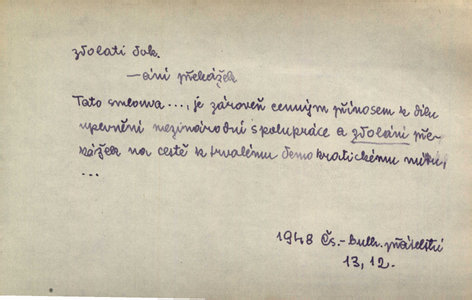 zdolati dok.
—ání překážek
Tato smlouva ..., je zároveň cenným přínosem k dílu
upevnění mezinárodní spolupráce a zdolání pře-
kážek na cestě k trvalému demokratickému míru,
...
1948 Čs.-bulh. přátelství
13, 12.